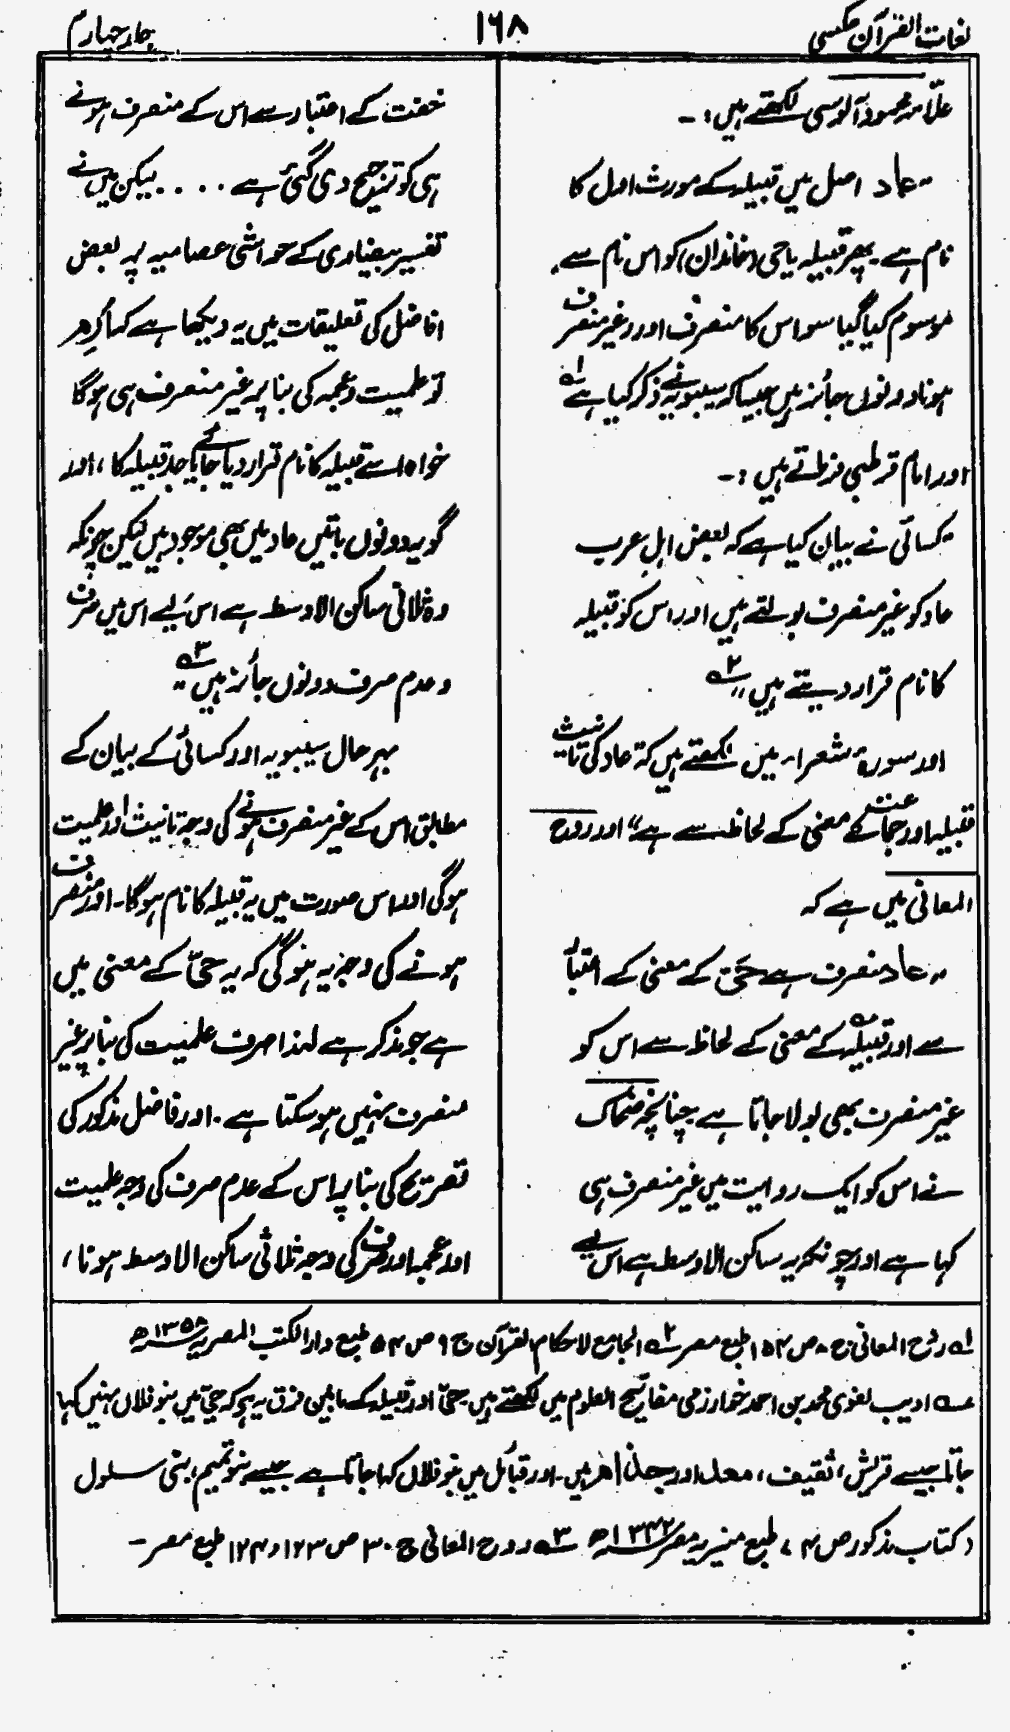 لغات القرآن عکسی
۱۶۸
جلد چہارم
علّامہ محمود آلوسی لکھتے ہیں:۔
"عاد اصل میں قبیلہ کے مورث اول کا
نام ہے۔ پھر قبیلہ یا حی (خاندان) کو اس نام سے
موسوم کیا گیا سو اس کا منصرف اور غیر منصرف
ہونا دونوں جائز ہیں جیسا کہ سیبویہ نے ذکر کیا ہے ۱ے
اور امام قرطبی فرماتے ہیں:۔
"کسائی نے بیان کیا ہے کہ بعض اہل عرب
عاد کو غیر منصرف بولتے ہیں اور اس کو قبیلہ
کا نام قرار دیتے ہیں" ۲ے
اور سورۂ شعراء میں لکھتے ہیں کہ عاد کی تانیث
قبیلہ اور جماعت کے معنی کے لحاظ سے ہے" اور روح
المعانی میں ہے کہ
"عاد منصرف ہے حَیّ کے معنی کے اعتبار
سے اور قبیلہ ے کے معنی کے لحاظ سے اس کو
غیر منصرف بھی بولا جاتا ہے چنانچہ ضحاک
نے اس کو ایک روایت میں غیر منصرف ہی
کہا ہے اور چونکہ یہ ساکن الاوسط ہے اس لیے
خفت کے اعتبار سے اس کے منصرف ہونے
ہی کو ترجیح دی گئی ہے . . . . لیکن میں نے
تفسیر بیضاوی کے حواشی عصامیہ پر بعض
افاضل کی تعلیقات میں یہ دیکھا ہے کہ اگر اِرم
تو علمیت و عجمہ کی بنا پر غیر منصرف ہی ہوگا
خواہ اسے قبیلہ کا نام قرار دیا جائے یا جد قبیلہ کا، اور
گو یہ دونوں باتیں عاد میں بھی موجود ہیں لیکن چونکہ
وہ ثلاثی ساکن الاوسط ہے اس لیے اس میں صرف
و عدم صرف دونوں جائز ہیں" ۳ے
بہر حال سیبویہ اور کسائی کے بیان کے
مطابق اس کے غیر منصرف ہونے کی وجہ تانیث اور علمیت
ہوگی اور اس صورت میں یہ قبیلہ کا نام ہوگا۔ اور منصرف
ہونے کی وجہ یہ ہوگی کہ یہ حَیّ کے معنی میں
ہے جو مذکر ہے لہذا صرف علمیت کی بنا پر غیر
منصرف نہیں ہو سکتا ہے۔ اور فاضل مذکور کی
تصریح کی بنا پر اس کے عدم صرف کی وجہ علمیت
اور عجمہ اور صرف کی وجہ ثلاثی ساکن الاوسط ہونا،
۱ے روح المعانی ج ۸ ص ۱۵۴ طبع مصر ۲ے الجامع لاحکام القرآن ج ۹ ص ۵۴ طبع دار الکتب المصریہ ۱۳۵۸ھ
ے ادیب لغوی محمد بن احمد خوارزمی مفاتیح العلوم میں لکھتے ہیں حَیّ اور قبیلہ کے مابین فرق یہ ہے کہ حَیّ میں بنو فلاں نہیں کہا
جاتا جیسے قریش، ثقیف، معد اور جذام ہیں۔ اور قبائل میں بنو فلاں کہا جاتا ہے جیسے بنو تمیم، بنی سلول
(کتاب مذکور ص ۷۴، طبع منیریہ مصر ۱۳۴۲ھ ۳ے روح المعانی ج ۳۰ ص ۱۲۳ و ۱۲۴ طبع مصر۔